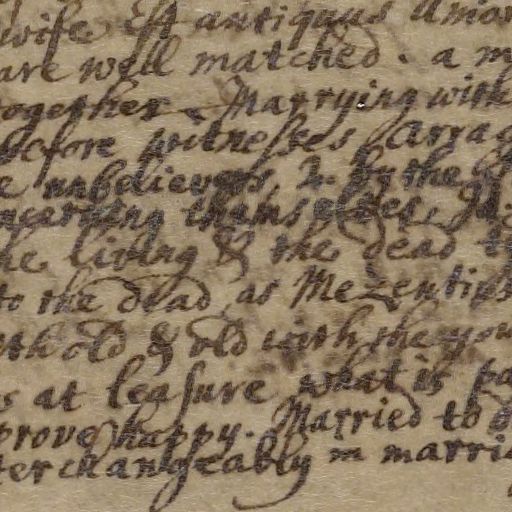 wife Est antiquus Amor
are well matched. a m
together. Marrying with
before witnesses, Carrag
e unbelievers, 2. by the
ncerning thems elves, Id.
he living & the dead t
to the dead, as Mezentius
th old & old with the you
s at leasure what is pa
prove happy. Married to
terchangeably in marri